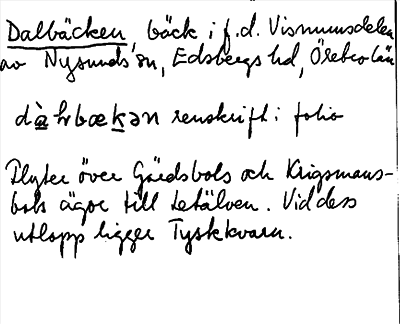 Dalbäcken, bäck i f.d. Visnumsdelen
av Nysunds sn, Edsbergs hd, Örebro län
renskrift i folio
Flyter över Gårdsbols och Krigsmans-
bols ägor till Letälven. Vid dess
utlopp ligger Tyskkvarn.